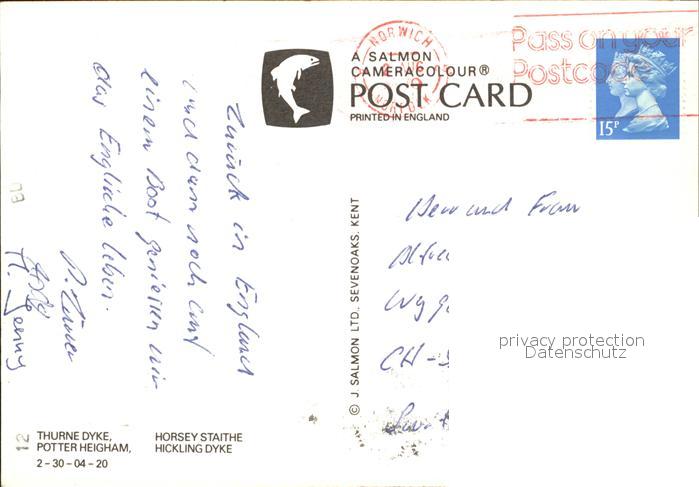 NORWICH
NORFOLK
Pass on your
Postcode
A SALMON
CAMERACOLOUR®
POST CARD
PRINTED IN ENGLAND
15P
Zurück in England
und dann noch auf
einem Boot geniessen wir
das Englische leben.
Herr und Frau
CH-
© J. SALMON LTD., SEVENOAKS, KENT
privacy protection
Datenschutz
12
THURNE DYKE,
POTTER HEIGHAM,
HORSEY STAITHE
HICKLING DYKE
2-30-04-20